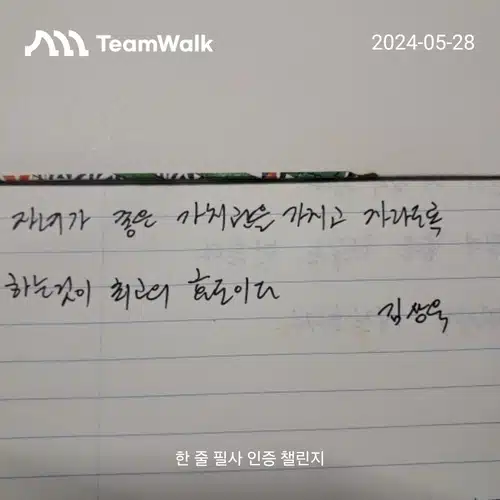 TeamWalk
2024-05-28
자녀가 좋은 가치관을 가지고 자라도록
하는것이 최고의 효도이다
김상욱
한 줄 필사 인증 챌린지